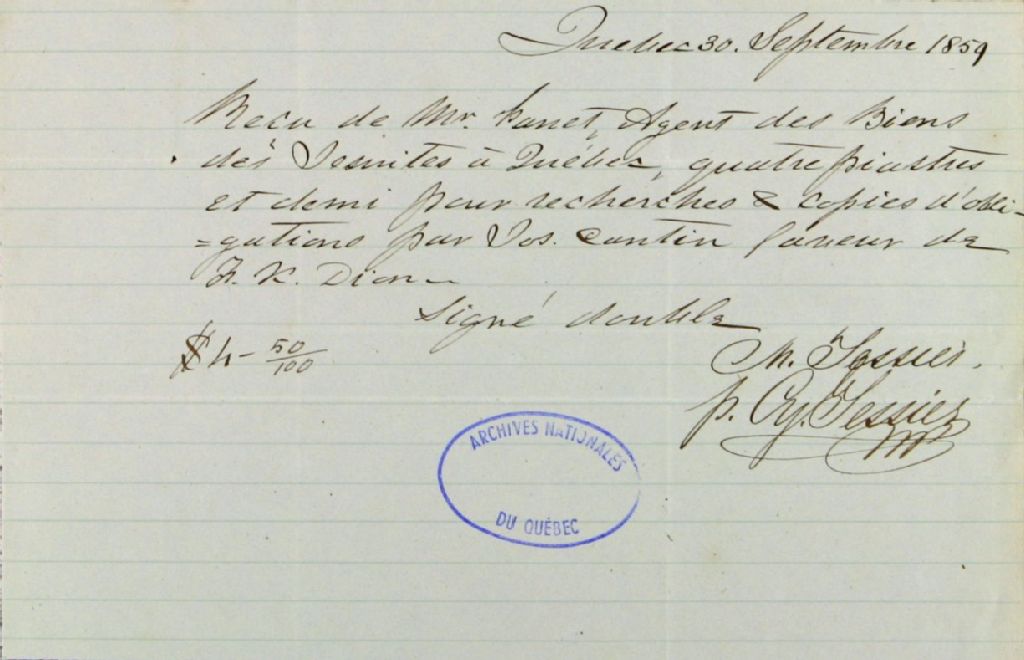 Quebec 30. Septembre 1859
Recu de Mr. Panet, Agent des Biens
des Jesuites à Québec, quatre piastres
et demi pour recherches & copies d'obli-
=gations par Jos. Cantin faveur de
F. X. Dion
Signé double
$4-50/100
M. Tessier.
p. Cy. Tessier
ARCHIVES NATIONALES
DU QUÉBEC